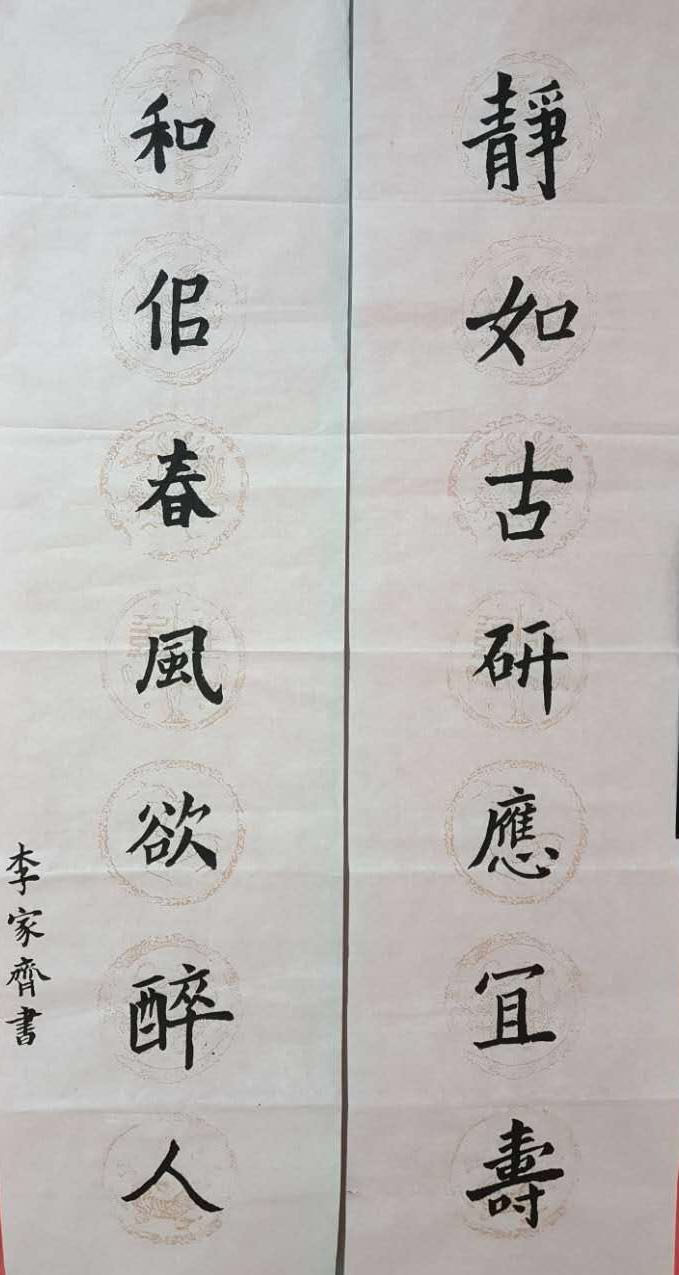 靜如古研應冝壽
和佀春風欲醉人
李家齊書